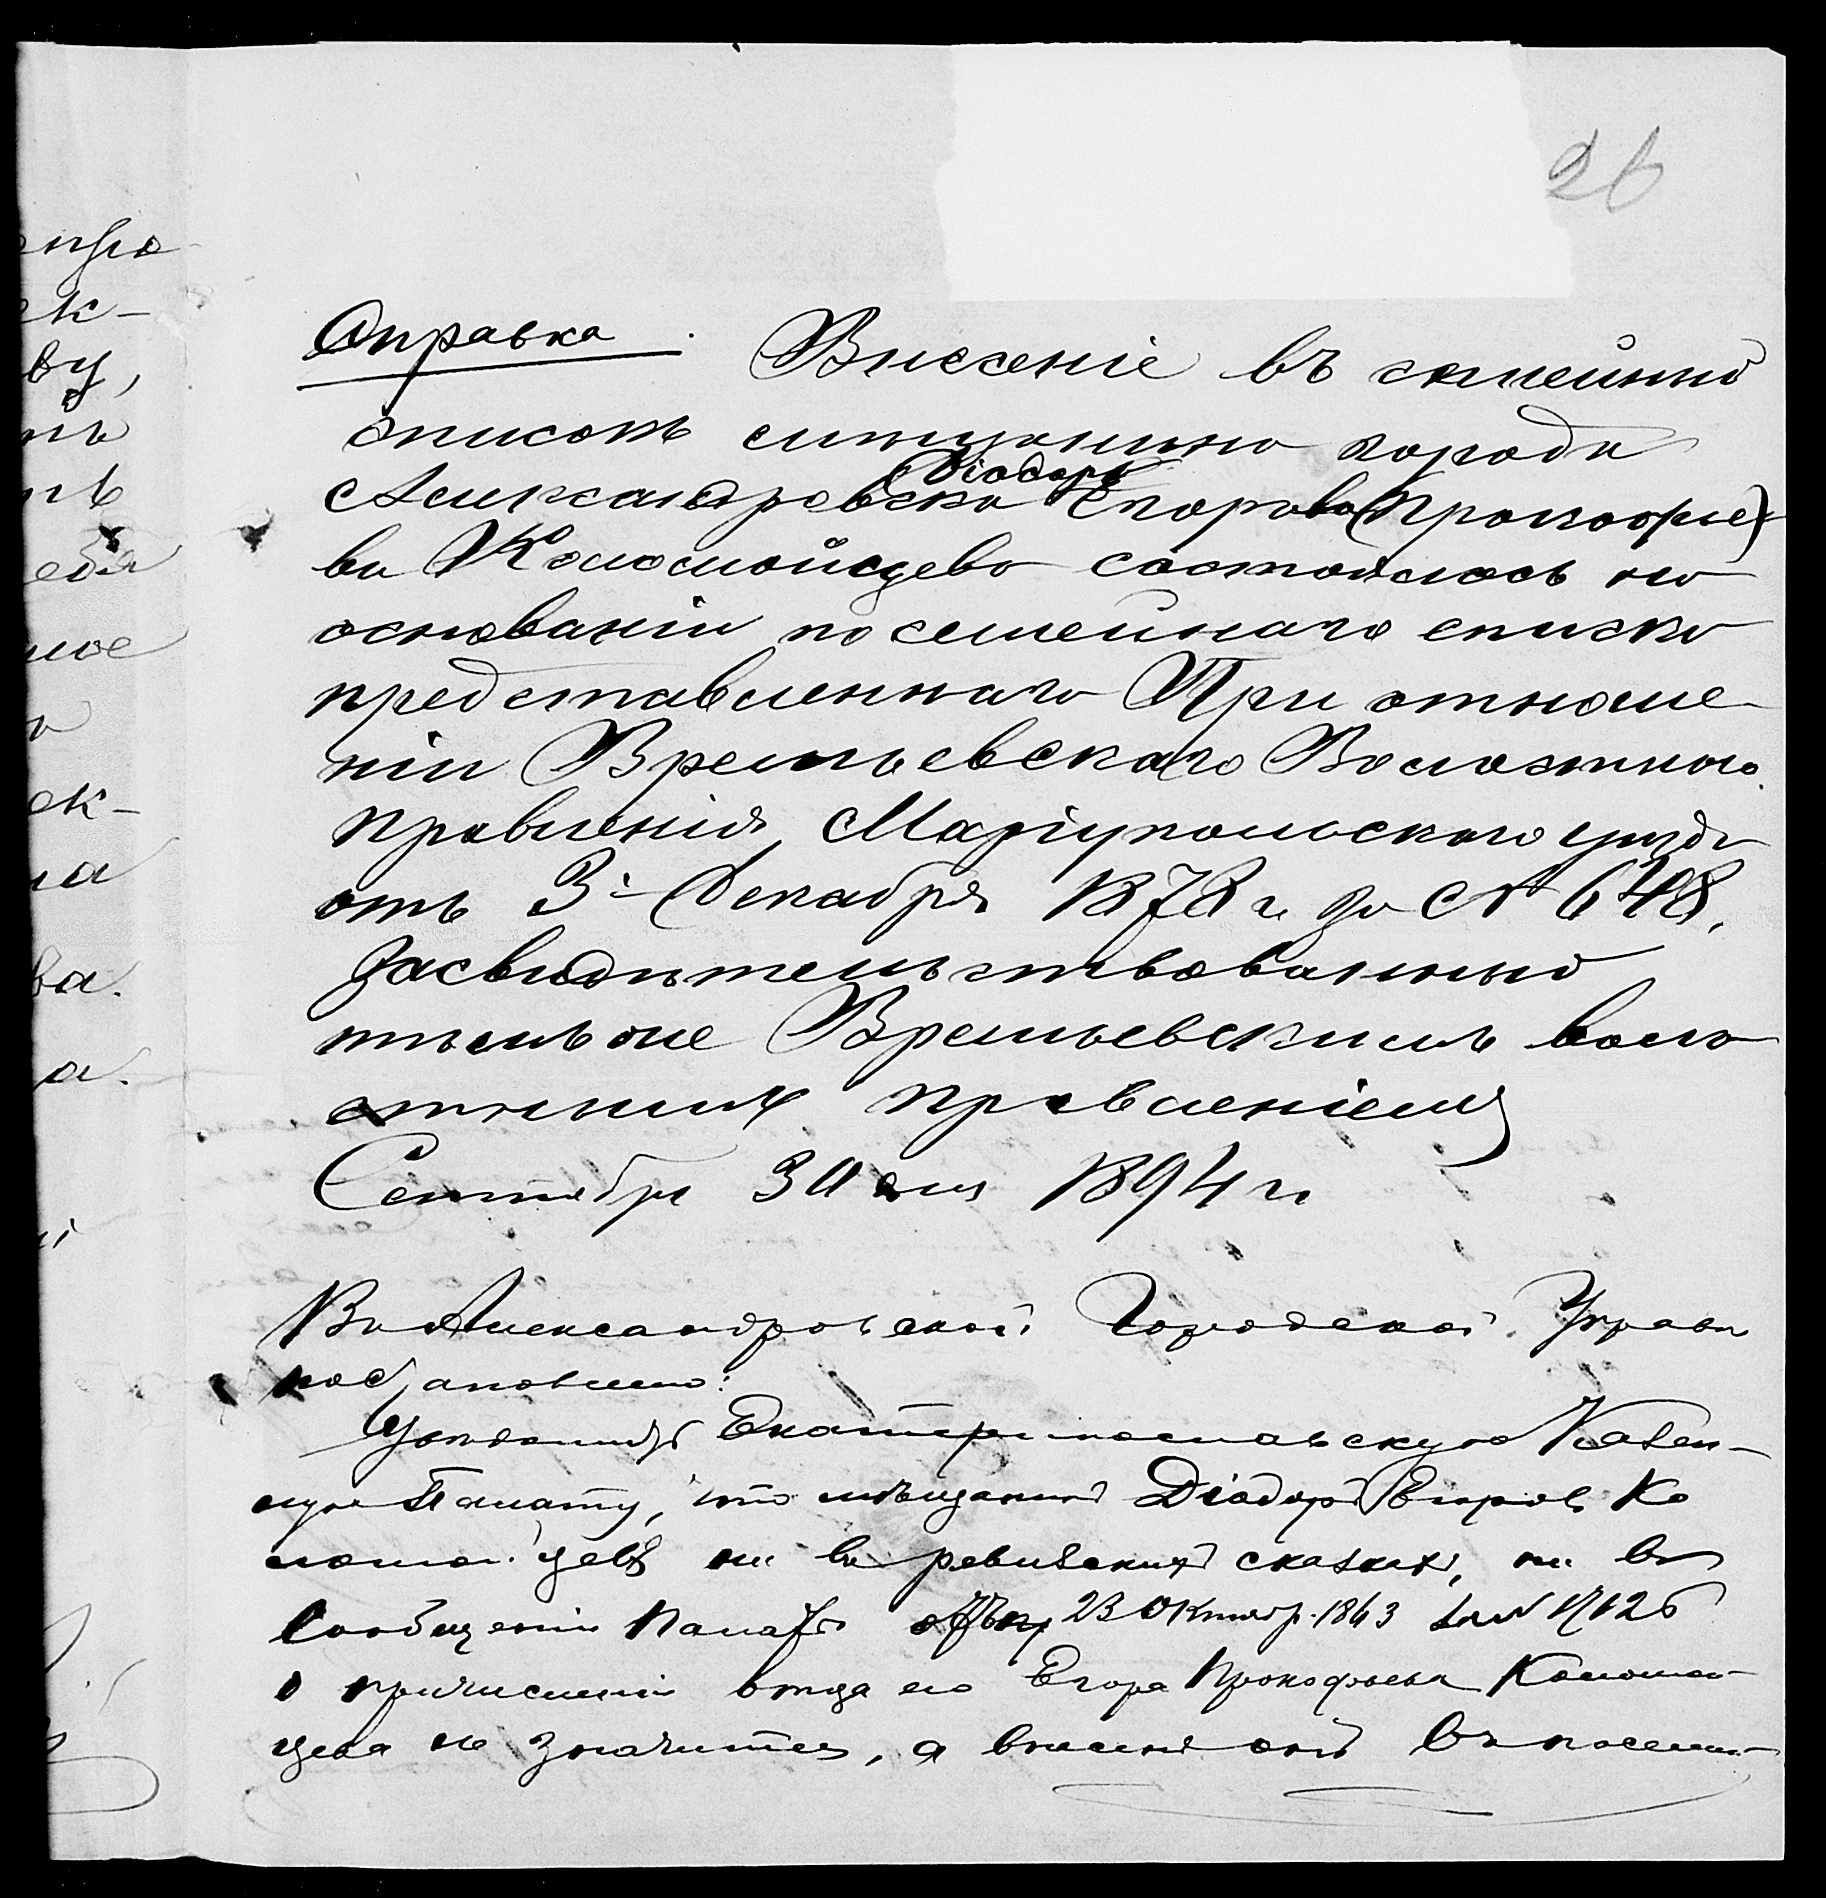 26
Справка. Внесеніе въ семейный
списокъ мещанина города
Александровска Діодора Егорова (Прокофье-
ва) Коломойцева состоялось на
основаніи посемейнаго списка
представленнаго При отноше-
ніи Времьевскаго Волостного
Правленія, Маріупольскаго уезда
отъ 3 Декабря 1878 г. за № 648,
засвидѣтельствованный
тѣмъ же Времьевскимъ воло-
стнымъ правленіемъ
Сентября 30 дня 1894 г.
Въ Александровской Городской Управѣ
постановлено:
Увѣдомить Екатеринославскую Казен-
ную Палату, что мѣщанинъ Діодоръ Егоровъ Ко
ломойцевъ ни въ ревизскихъ сказкахъ, ни въ
сообщеніи Палаты 23 Октябр. 1863 за №
о причисленіи отца его Егора Прокофьева Коломой-
цева не значится, а внесенъ онъ въ посемей-